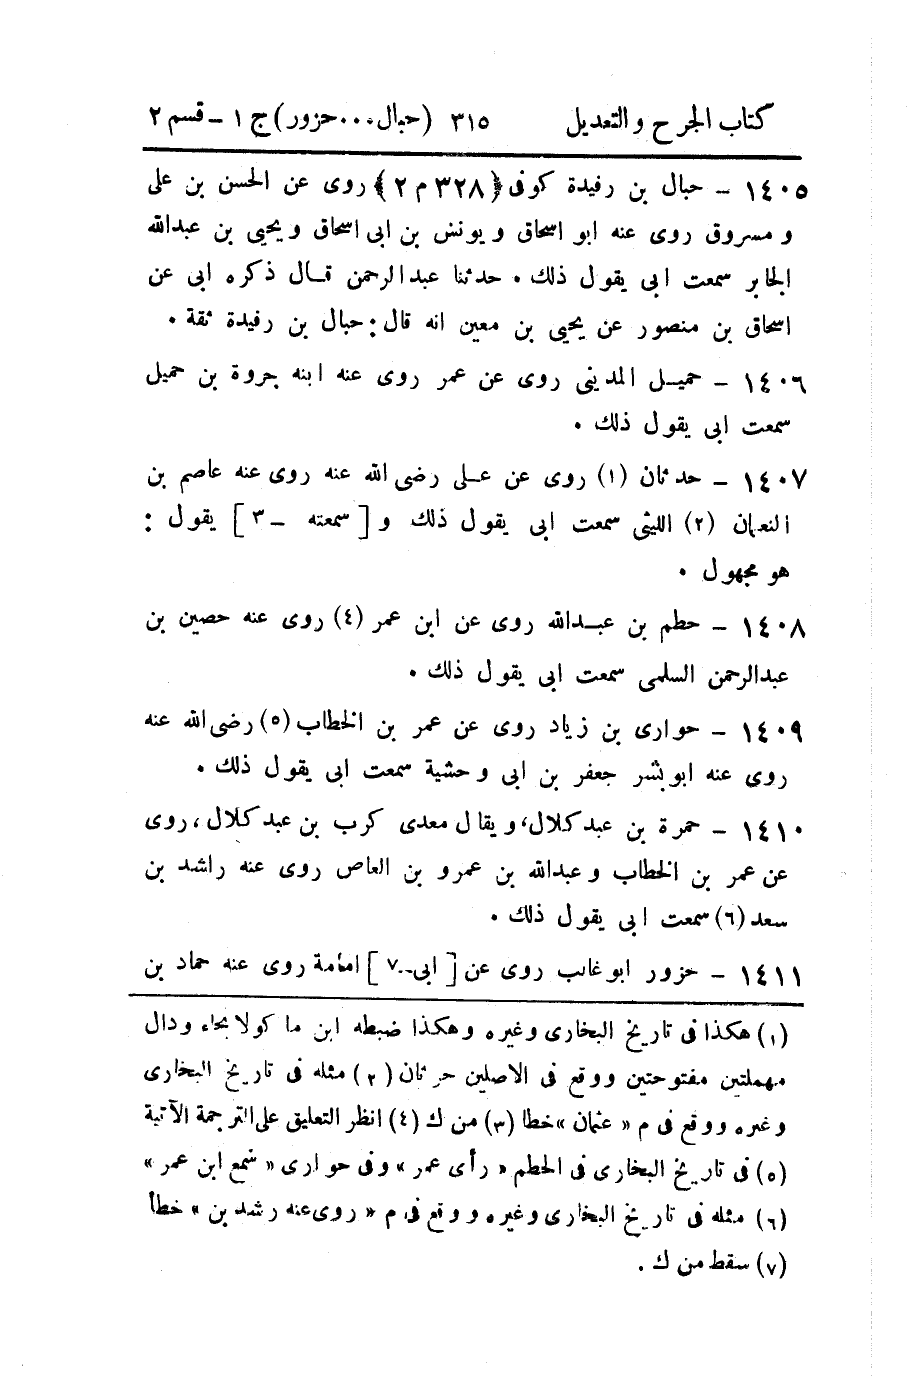 كتاب الجرح والتعديل ٣١٥ (حبال...حزور) ج ١ - قسم ٢
١٤٠٥ - حبال بن رفيدة كوفى ﴿٣٢٨ م ٢﴾ روى عن الحسن بن على
و مسروق روى عنه ابو اسحاق و يونس بن ابى اسحاق و يحيى بن عبدالله
الجابر سمعت ابى يقول ذلك . حدثنا عبدالرحمن قال ذكره ابى عن
اسحاق بن منصور عن يحيى بن معين انه قال : حبال بن رفيدة ثقة .
١٤٠٦ - حميل المدينى روى عن عمر روى عنه ابنه جروة بن حميل
سمعت ابى يقول ذلك .
١٤٠٧ - حدثان (١) روى عن على رضى الله عنه روى عنه عاصم بن
النعمان (٢) الليثى سمعت ابى يقول ذلك و [ سمعته - ٣ ] يقول :
هو مجهول .
١٤٠٨ - حطم بن عبدالله روى عن ابن عمر (٤) روى عنه حصين بن
عبدالرحمن السلمى سمعت ابى يقول ذلك .
١٤٠٩ - حوارى بن زياد روى عن عمر بن الخطاب (٥) رضى الله عنه
روى عنه ابو بشر جعفر بن ابى وحشية سمعت ابى يقول ذلك .
١٤١٠ - حمرة بن عبد كلال، و يقال معدى كرب بن عبد كلال، روى
عن عمر بن الخطاب و عبدالله بن عمرو بن العاص روى عنه راشد بن
سعد (٦) سمعت ابى يقول ذلك .
١٤١١ - حزور ابو غالب روى عن [ ابى - ٧ ] امامة روى عنه حماد بن
(١) هكذا فى تاريخ البخارى وغيره وهكذا ضبطه ابن ما كولا بحاء ودال
مهملتين مفتوحتين ووقع فى الاصلين حرثان (٢) مثله فى تاريخ البخارى
وغيره ووقع فى م « عثمان » خطا (٣) من ك (٤) انظر التعليق على الترجمة الآتية
(٥) فى تاريخ البخارى فى الحطم « رأى عمر » وفى حوارى « سمع ابن عمر »
(٦) مثله فى تاريخ البخارى وغيره ووقع فى م « روى عنه رشد بن » خطأ
(٧) سقط من ك .